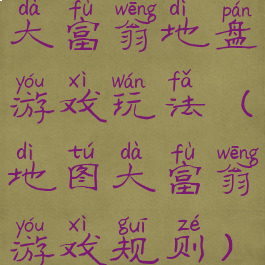 dà fù wēng dì pán
大富翁地盘
yóu xì wán fǎ
游戏玩法（
dì tú dà fù wēng
地图大富翁
yóu xì guī zé
游戏规则）